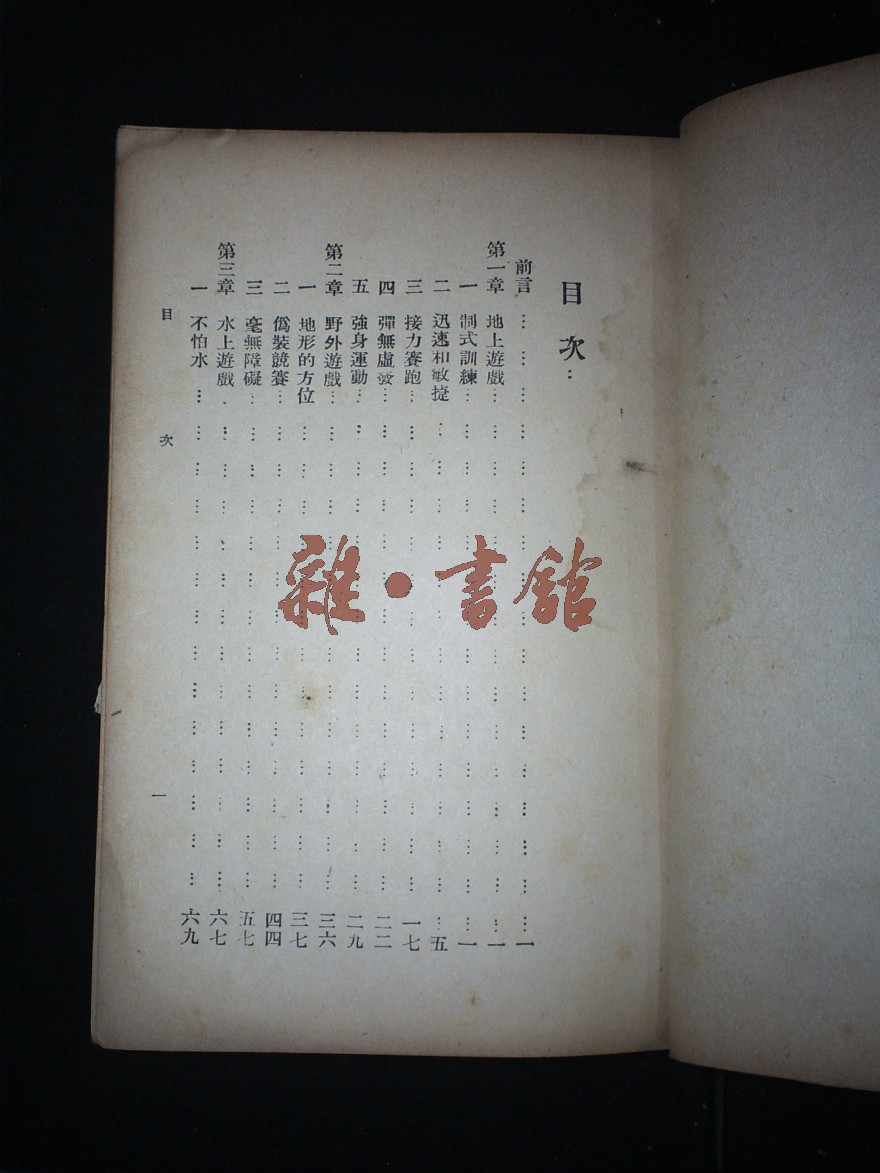 目次
前言 一
第一章 地上遊戲 一
一 制式訓練 一
二 迅速和敏捷 五
三 接力賽跑 一七
四 彈無虛發 二二
五 強身運動 二九
第二章 野外遊戲 三六
一 地形的方位 三七
二 偽裝競賽 四四
三 毫無障礙 五七
第三章 水上遊戲 六七
一 不怕水 六九
目次 一
雜•書館